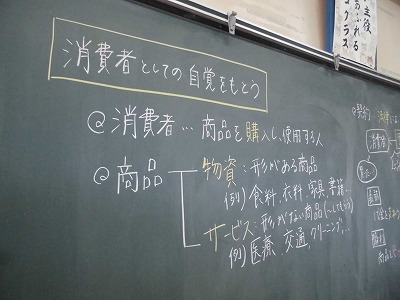 消費者としての自覚をもとう
@消費者…商品を購入し、使用する人
@商品
物資：形がある商品
例）食料、衣料、家具、書籍…
サービス：形がない商品（〜してもらう）
例）医療、交通、クリーニング…
主役
あふれる
クラス
消費者